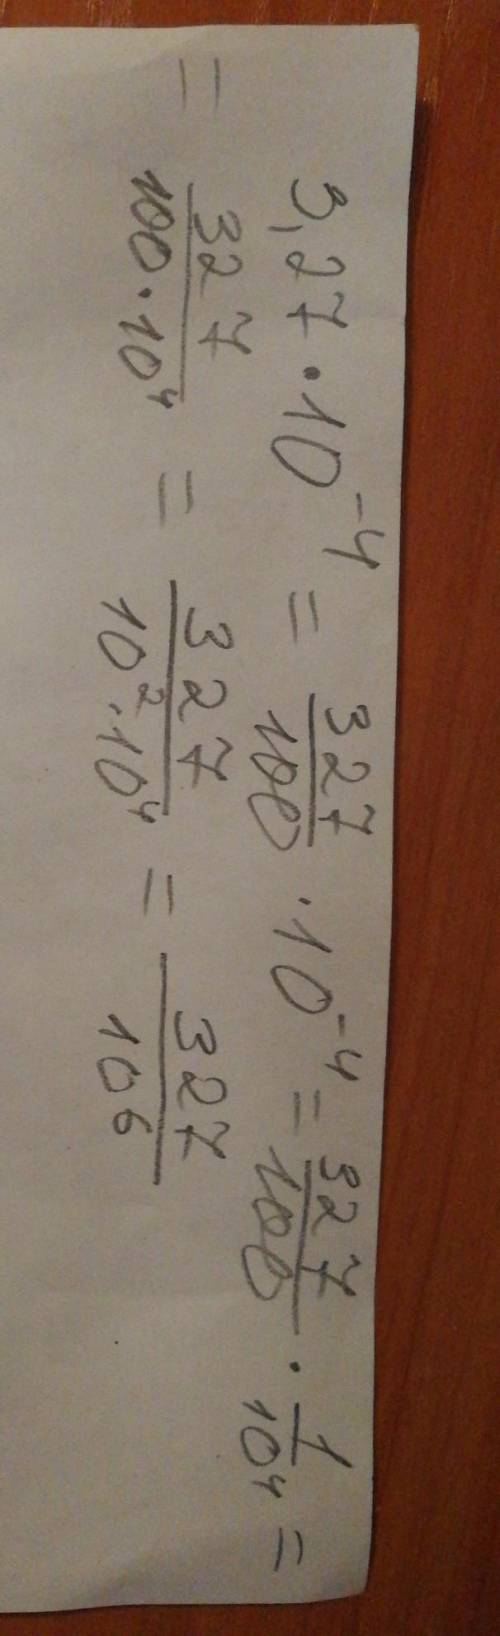 3,27 · 10⁻⁴ = 327/100 · 10⁻⁴ = 327/100 · 1/10⁴ =
= 327/(100 · 10⁴) = 327/(10² · 10⁴) = 327/10⁶